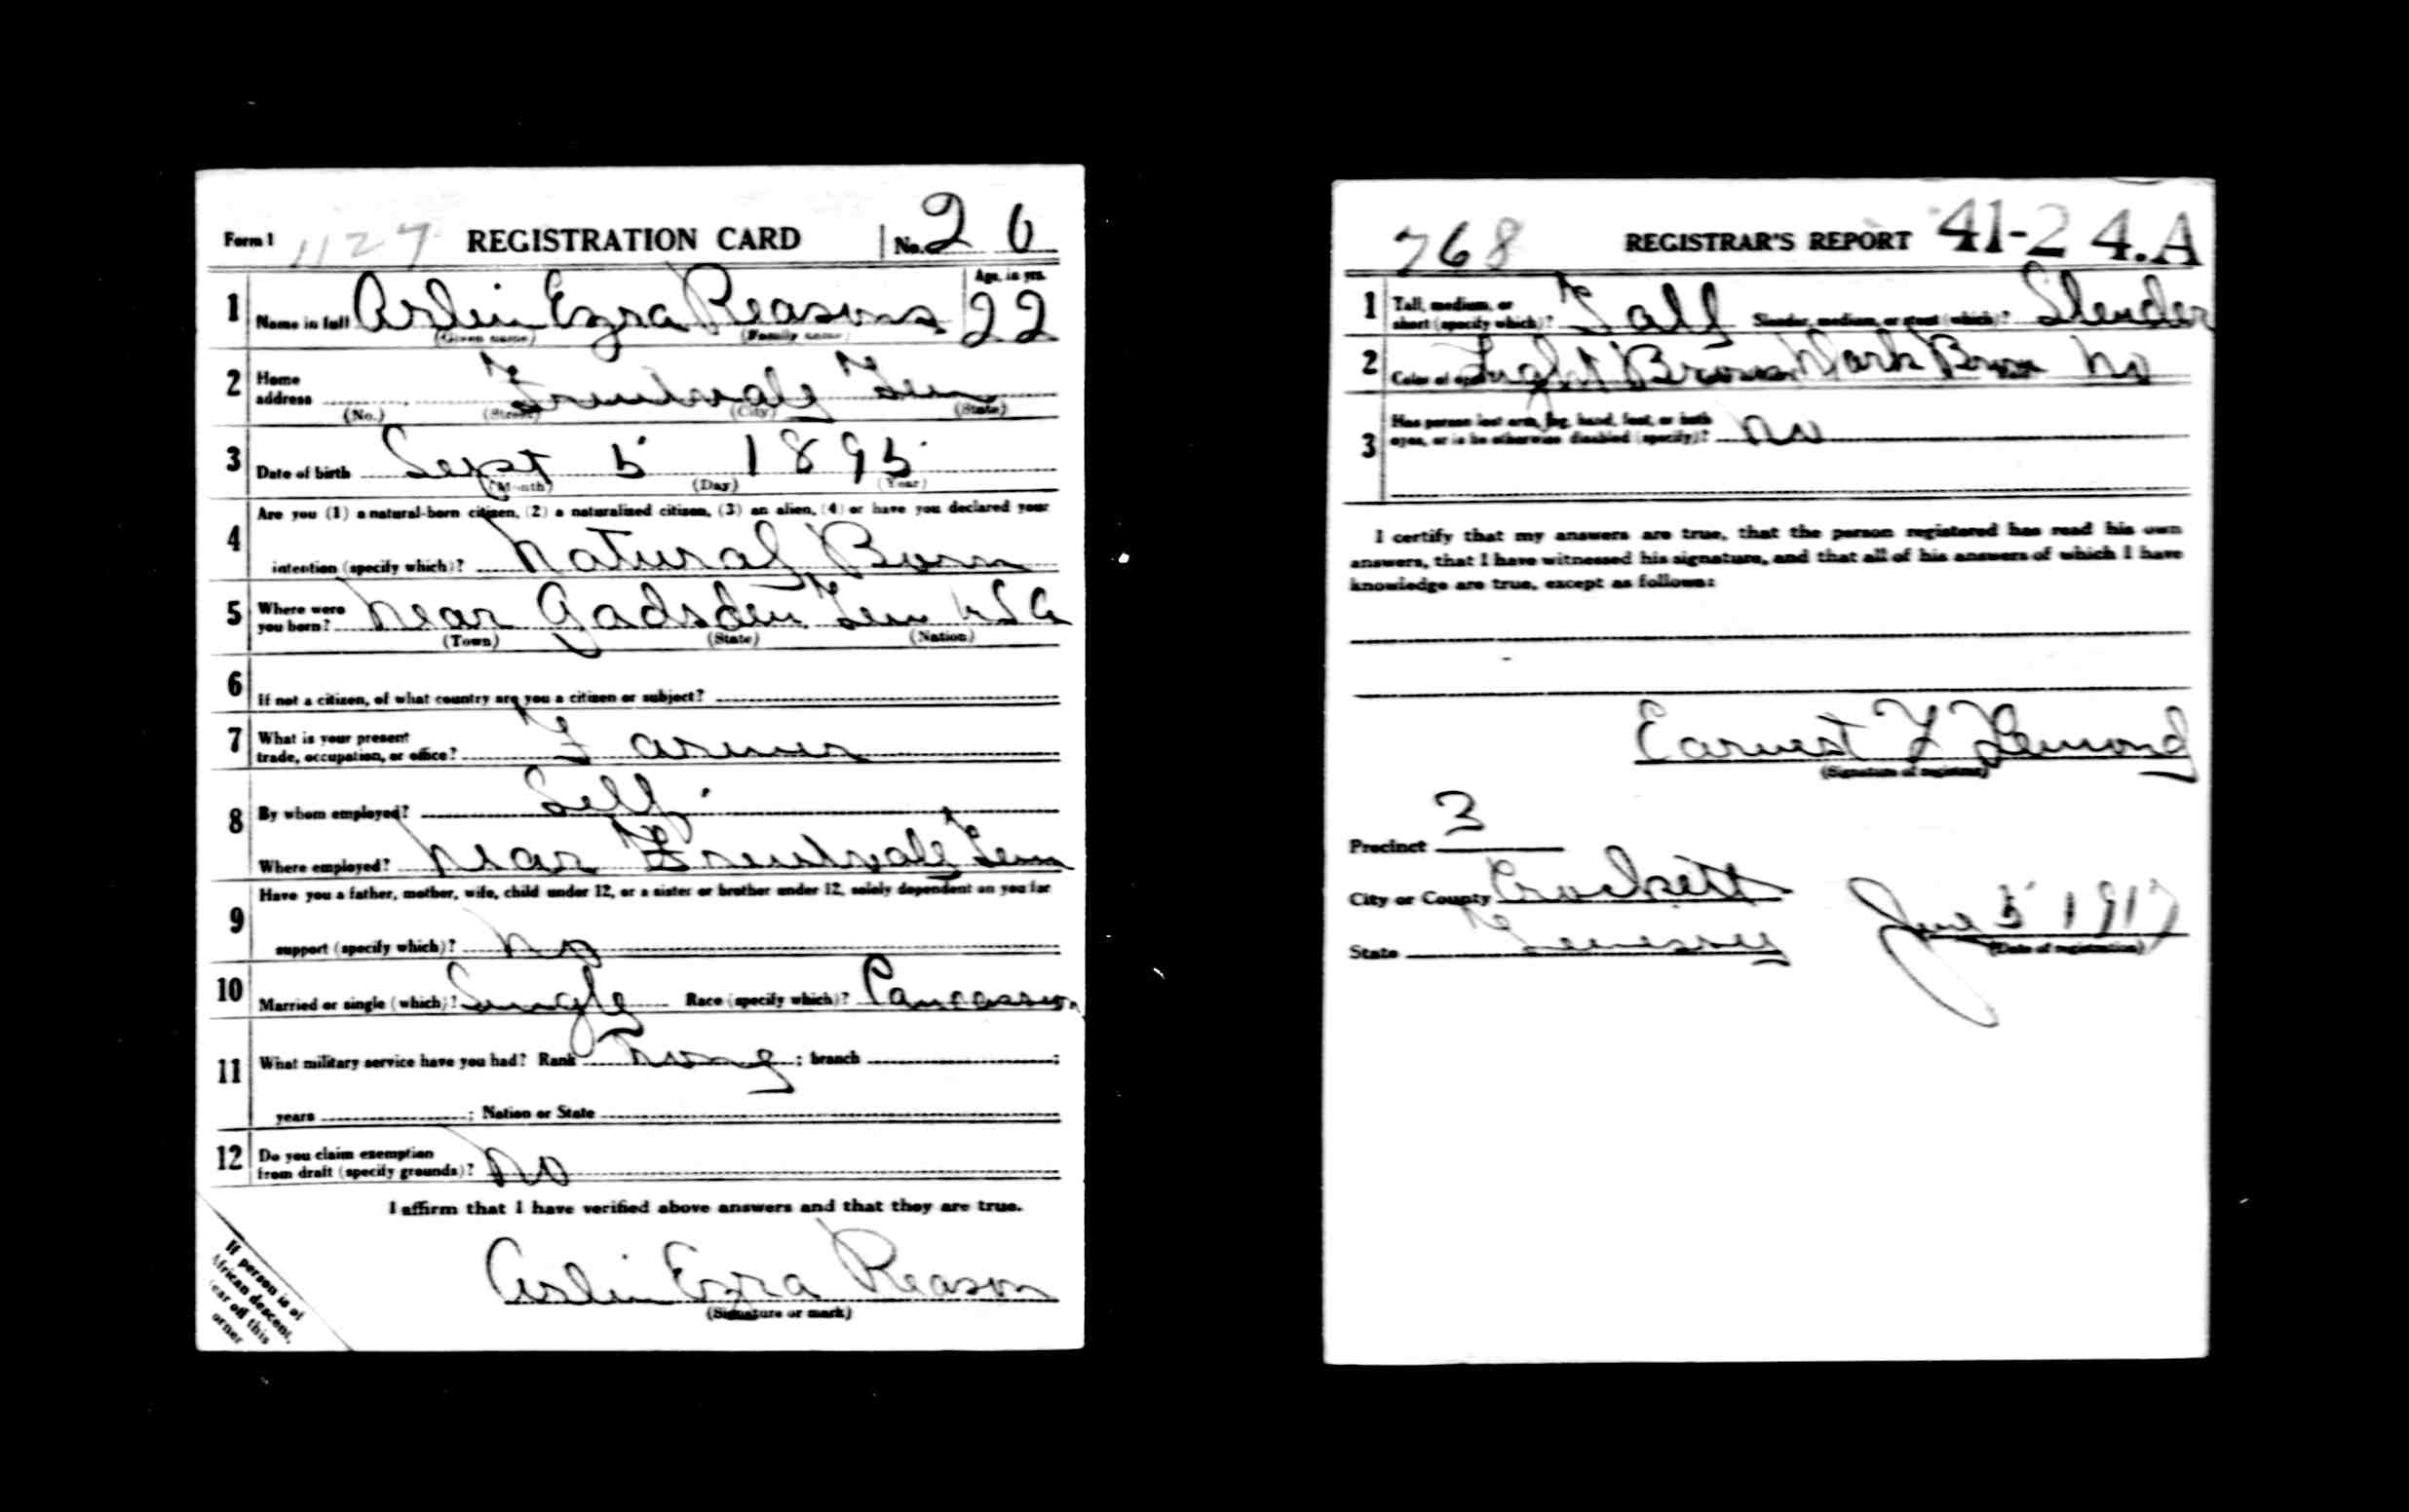 Form 1 1127 REGISTRATION CARD No. 26
1 Name in full Arlin Ezra Reasons Age, in yrs. 22
(Given name) (Family name)
2 Home address Fruitvale Ten
(No.) (Street) (City) (State)
3 Date of birth Sept 5 1895
(Month) (Day) (Year)
4 Are you (1) a natural-born citizen, (2) a naturalized citizen, (3) an alien, (4) or have you declared your
intention (specify which)? Natural Born
5 Where were you born? near Gadsden Ten USA
(Town) (State) (Nation)
6 If not a citizen, of what country are you a citizen or subject?
7 What is your present
trade, occupation, or office? Farmer
8 By whom employed? Self
Where employed? near Fruitvale Tenn
9 Have you a father, mother, wife, child under 12, or a sister or brother under 12, solely dependent on you for
support (specify which)? no
10 Married or single (which)? Single Race (specify which)? Caucassion
11 What military service have you had? Rank none ; branch ;
years ; Nation or State
12 Do you claim exemption
from draft (specify grounds)? no
I affirm that I have verified above answers and that they are true.
Arlin Ezra Reason
(Signature or mark)
If person is of
African descent,
tear off this
corner
768 REGISTRAR'S REPORT 41-2 4.A
1 Tall, medium, or
short (specify which)? Tall Slender, medium, or stout (which)? Slender
2 Color of eyes Light Brown Dark Brown No
3 Has person lost arm, leg, hand, foot, or both
eyes, or is he otherwise disabled (specify)? no
I certify that my answers are true, that the person registered has read his own
answers, that I have witnessed his signature, and that all of his answers of which I have
knowledge are true, except as follows:
Earnest F Lemond
(Signature of registrar)
Precinct 3
City or County Crockett
State Tennessey June 5 1917
(Date of registration)